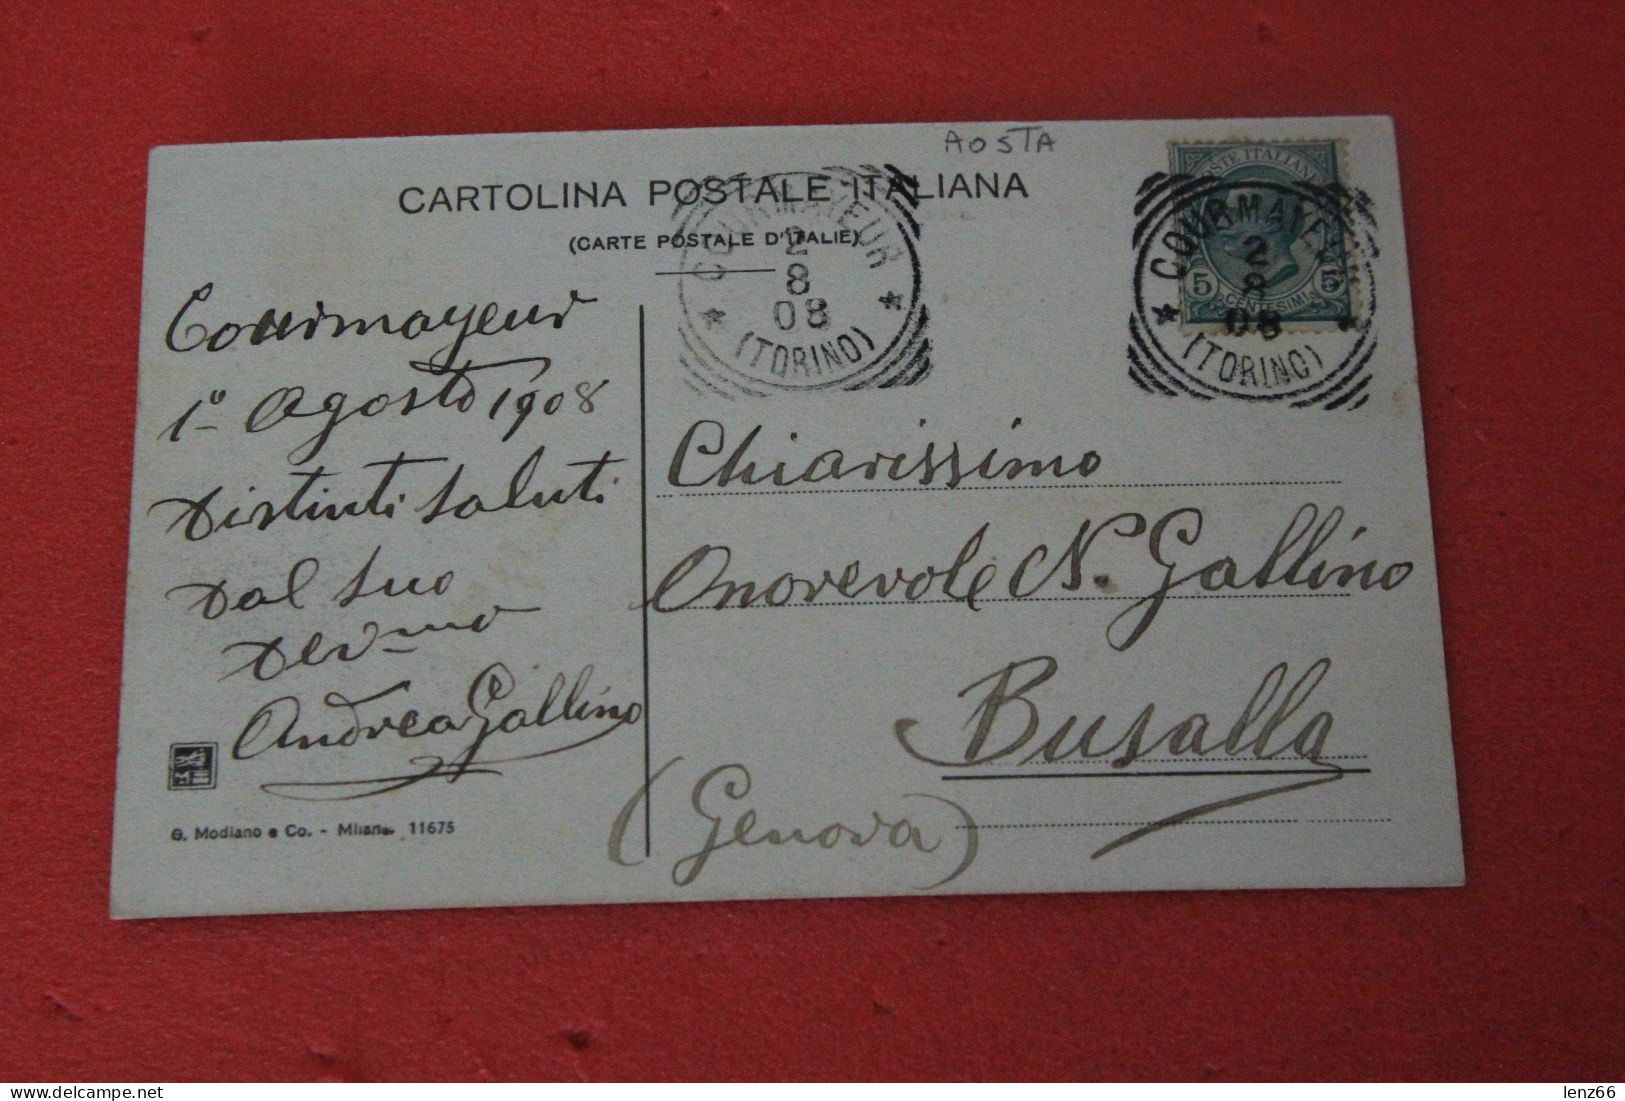 AOSTA
CARTOLINA POSTALE ITALIANA
(CARTE POSTALE D'ITALIE)
COURMAYEUR
2
8
08
(TORINO)
POSTE ITALIANE
5 CENTESIMI 5
COURMAYEUR
2
8
08
(TORINO)
Courmayeur
1º Agosto 1908
Distinti saluti
dal suo
dev.mo
Andrea Gallino
G. Modiano e Co. - Milano. 11675
Chiarissimo
Onorevole N. Gallino
Busalla
(Genova)
lenz66